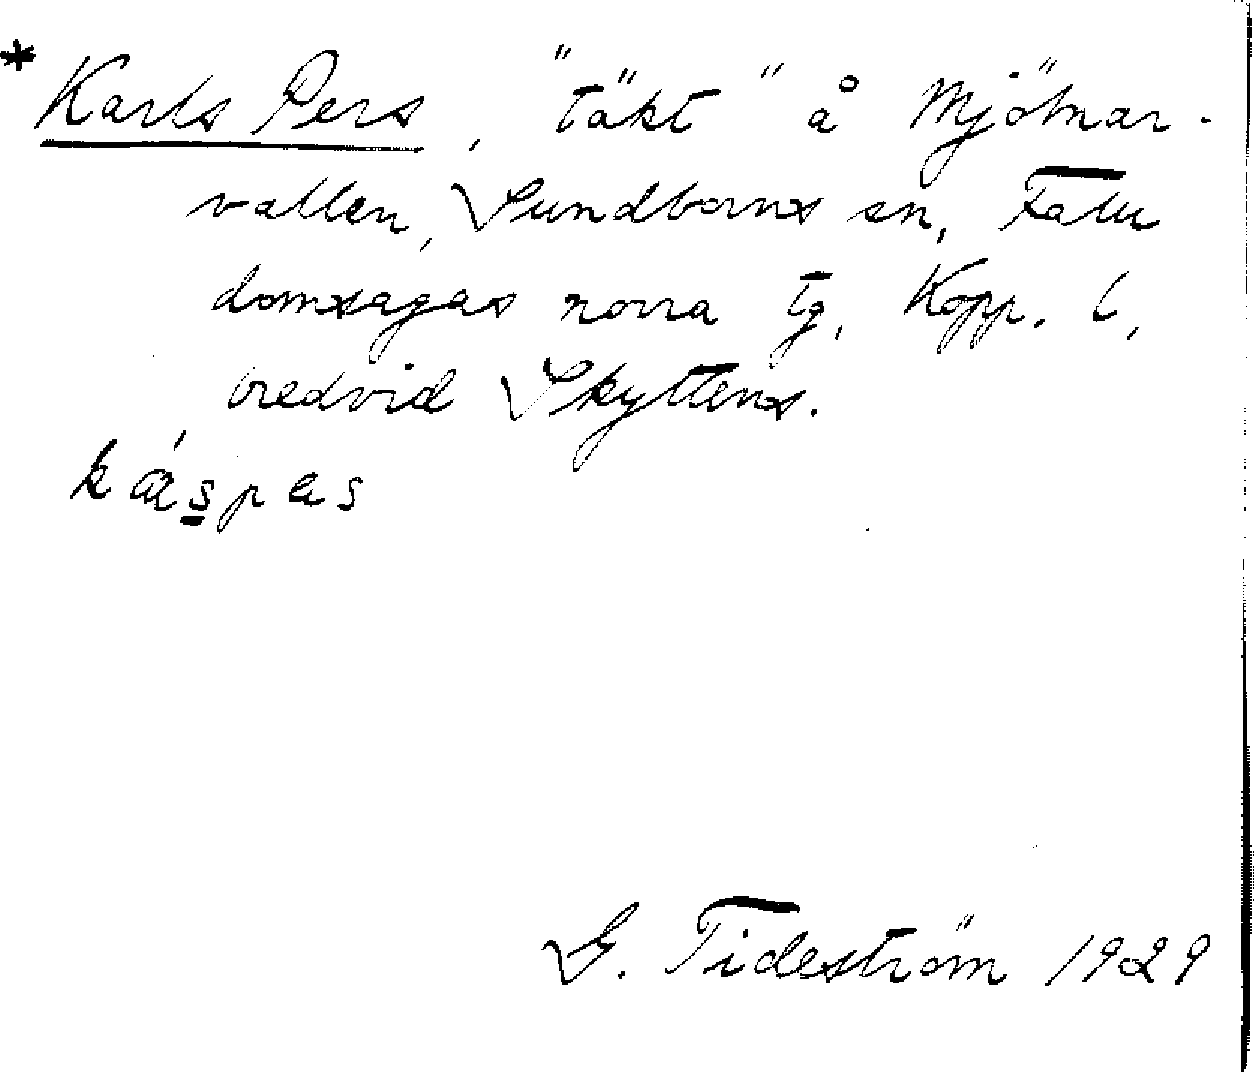 * Karls Pers, "täkt" å Mjölnar-
vallen, Sundborns sn, Falu
domsagas norra tg, Kopp. l,
bredvid Skyttens.
káspas
G. Tideström 1929